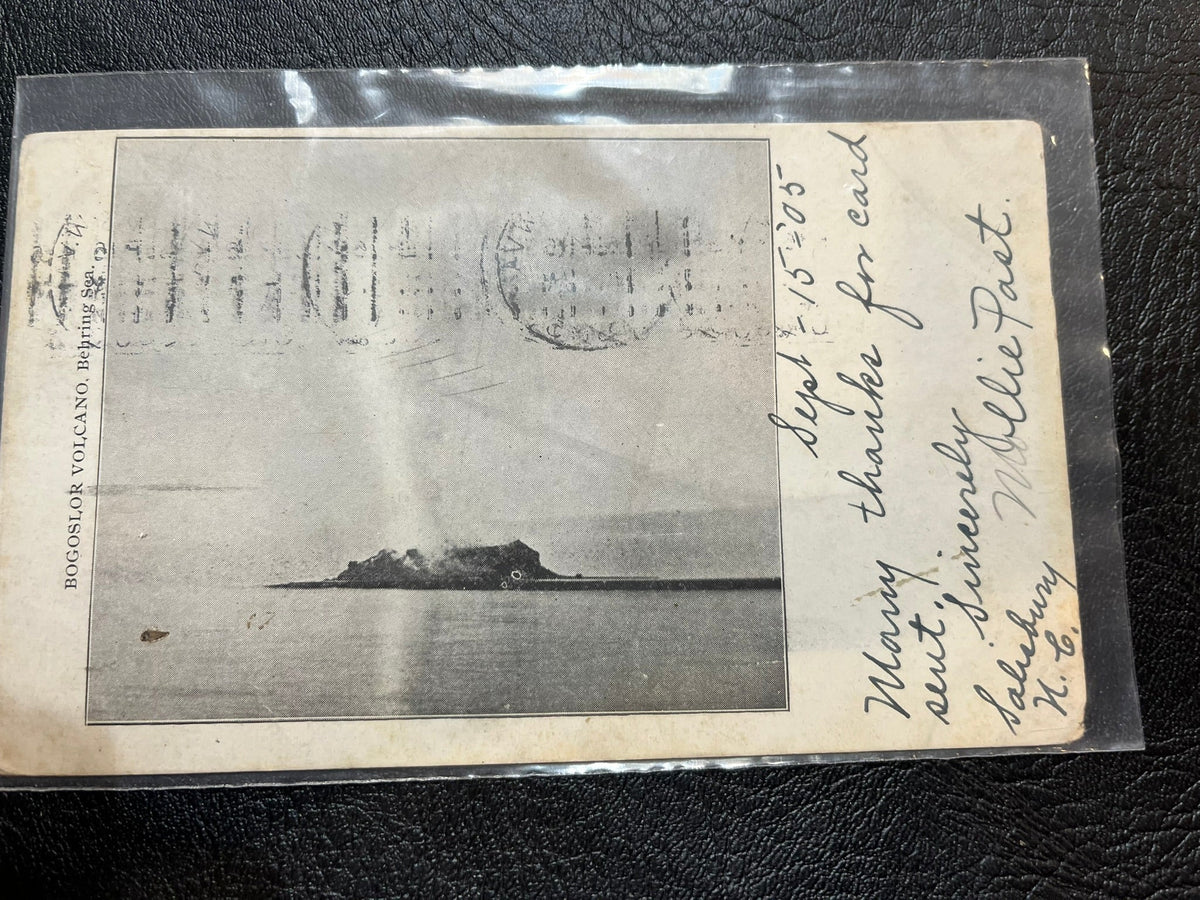 BOGOSLOR VOLCANO, Behring Sea.
Sept - 15 - 05
Many thanks for card
sent.
Sincerely
Mollie Past.
Salisbury
N. C.